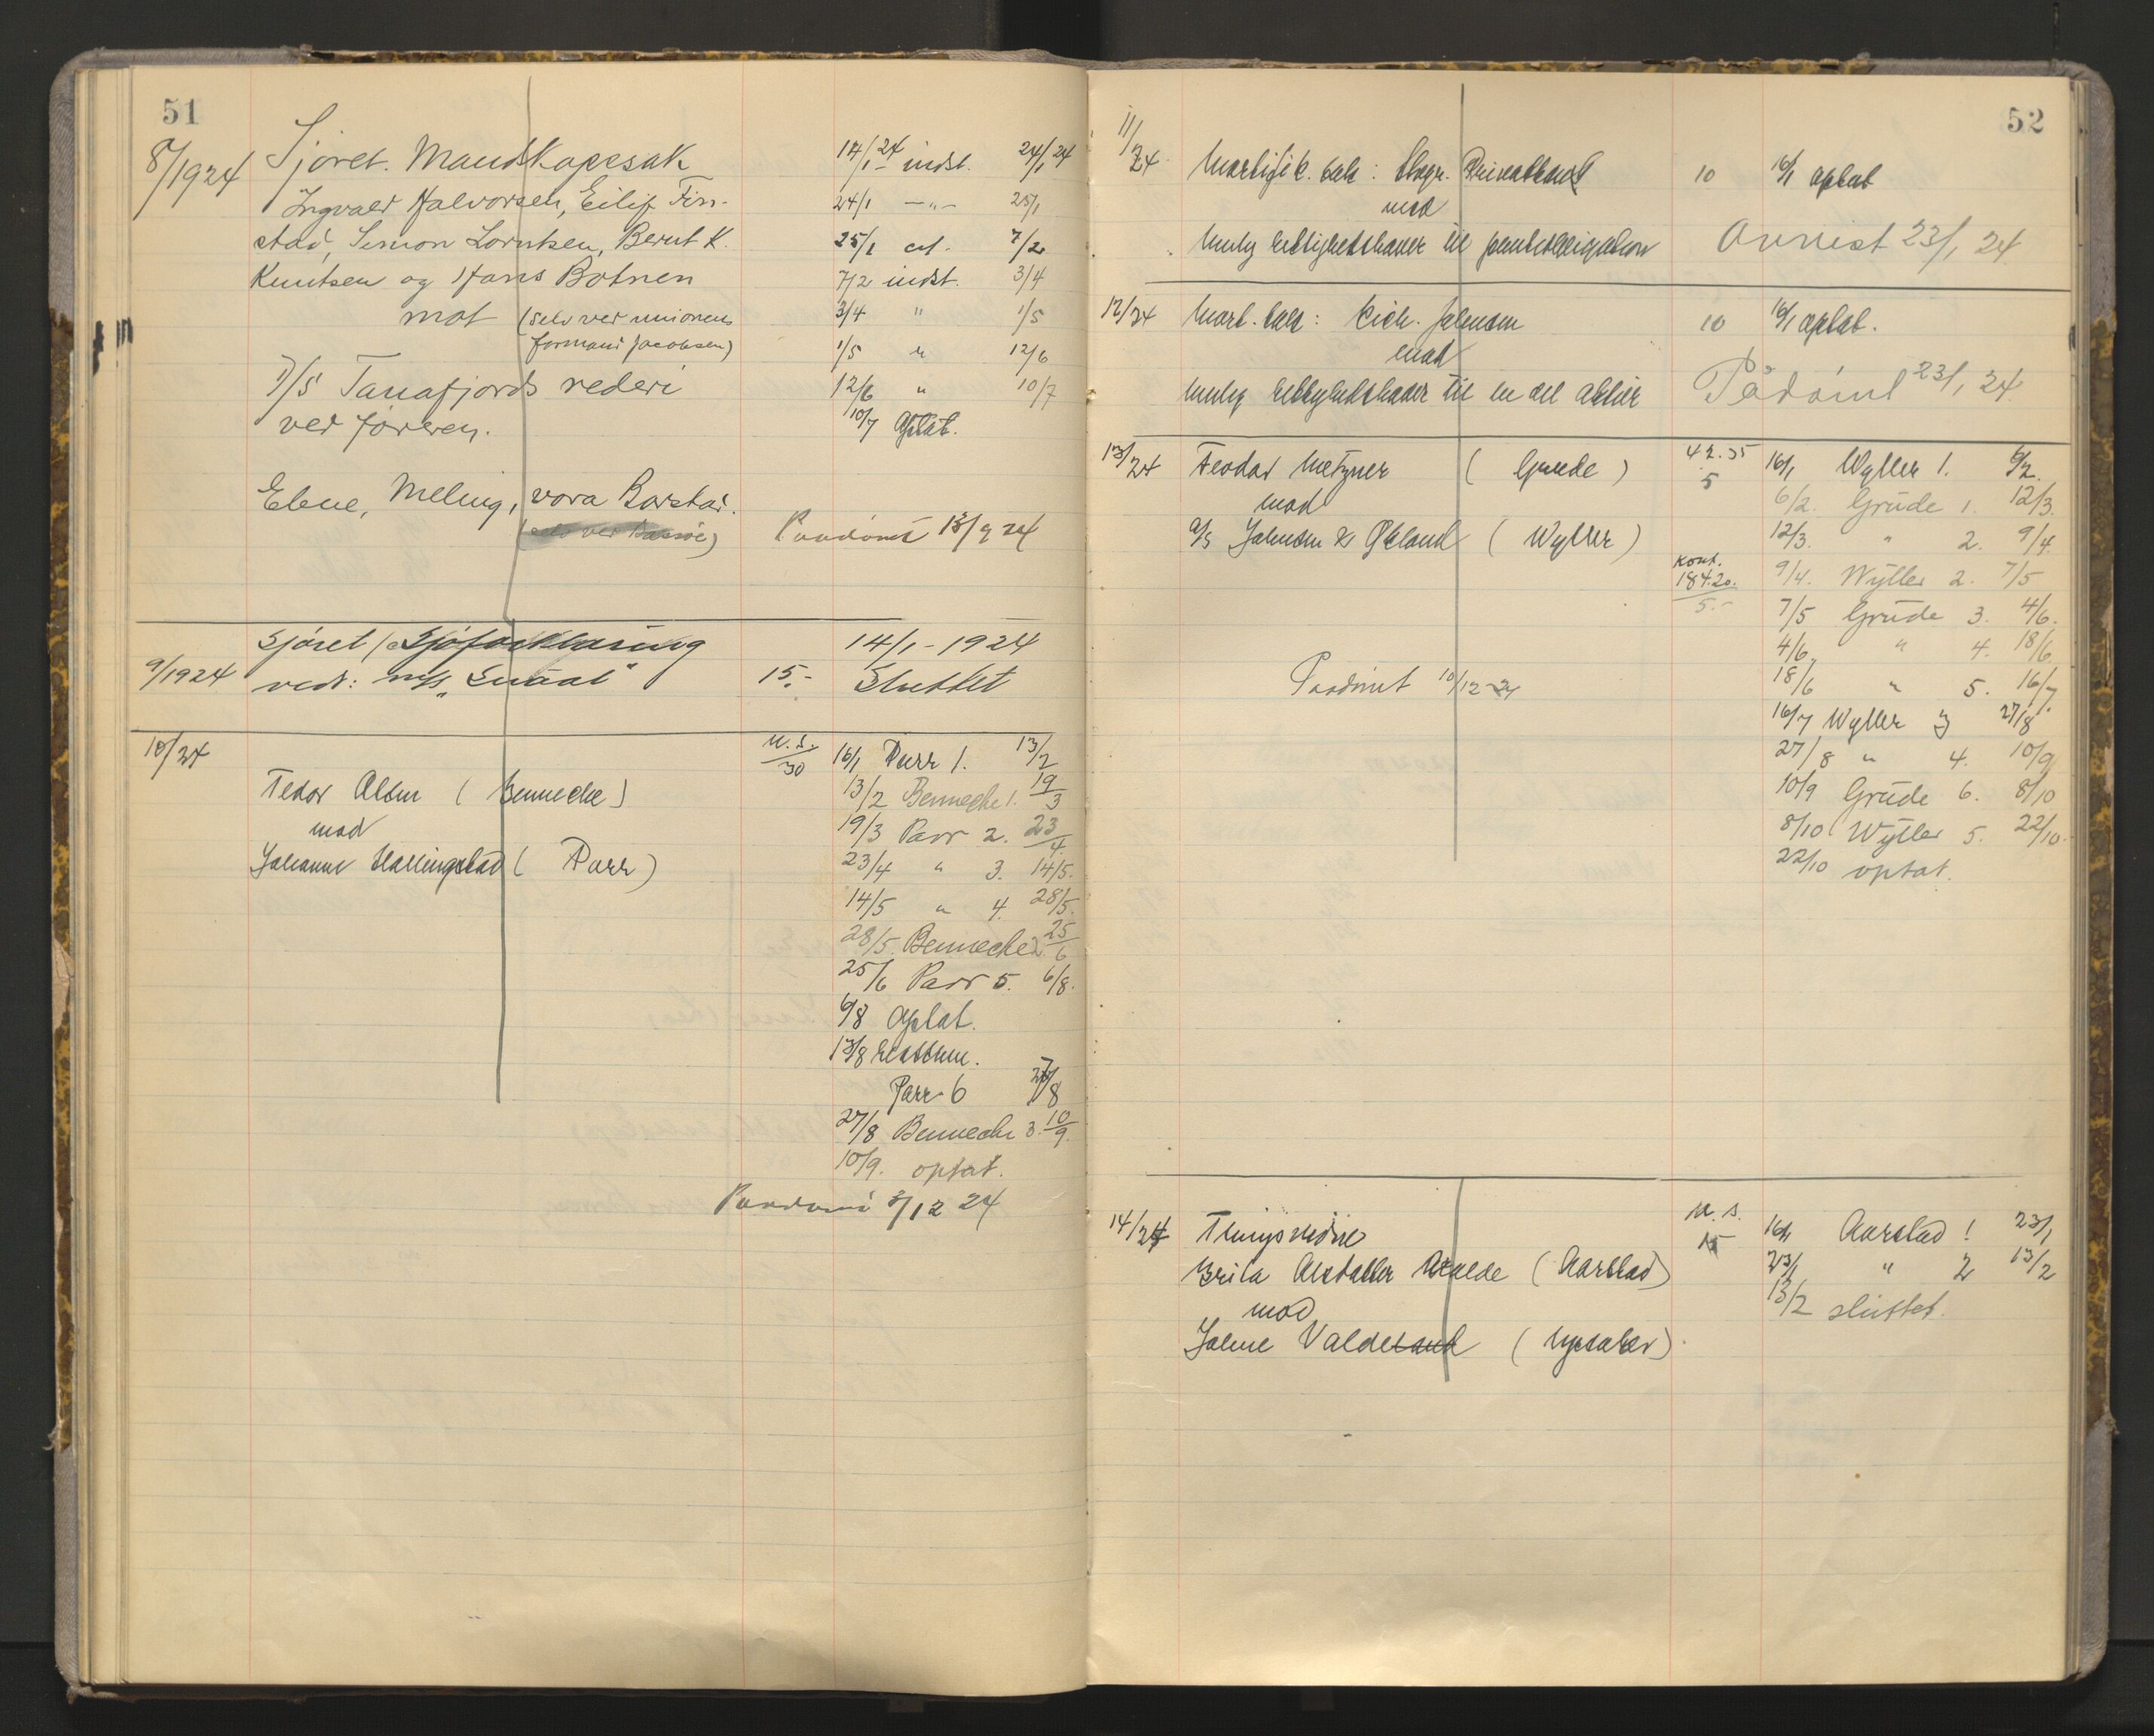 51
8/1924 Sjöret. Mandskapssak 14/1 24 indst. 24/1 24
Ingvald Halvorsen, Eilif Fin- 24/1 —"— 25/1
stad, Simon Lorntsen, Bernt K. 25/1 7/2
Knutsen og Hans Botnen 7/2 indst. 3/4
mot (selv ved unionens 3/4 " 1/5
formand Jacobsen) 1/5 " 12/6
D/S Tanafjords rederi 12/6 " 10/7
ved föreren. 10/7 Optat.
Elene, Meling,
Paadömt 13/9 24
Sjöret / Sjöforklaring 14/1 - 1924
9/1924 vedr: m/s „Snaal" 15.- Sluttet
10/24 U.S. 30 16/1 Parr 1. 13/2
Tedor Olsen (Bennecke) 13/2 Bennecke 1. 19/3
mod 19/3 Parr 2. 23/4
Johanne Hallingstad (Parr) 23/4 " 3. 14/5.
14/5 " 4. 28/5.
28/5. Bennecke 2. 25/6
25/6 Parr 5. 6/8.
6/8 Optat.
13/8
Parr 6 27/8
27/8 Bennecke 3. 10/9.
10/9. optat.
Paadömt 3/12 24
52
11/24 Mortifik. sak: Stvgr. Privatbank 10 16/1 optat
mod
mulig rettighetshaver til panteobligation Avvist 23/1 24
12/24 Mort. sak: Rich. Johnsen 10 16/1 optat.
mod
mulig rettighetshaver til en del aktier Pådömt 23/1 24
13/24 Teodor Metzner (Grude) 42.35 16/1 Wyller 1. 6/2
mod 5 6/2. Grude 1. 12/3.
A/S Johnsen & Økland (Wyller) 12/3. " 2. 9/4.
Kont. 184.20. 9/4. Wyller 2. 7/5
5.- 7/5 Grude 3. 4/6.
4/6. " 4. 18/6
Paadömt 10/12-24 18/6 " 5. 16/7.
16/7 Wyller 3 27/8
27/8 " 4. 10/9
10/9 Grude 6. 8/10
8/10 Wyller 5. 22/10.
22/10 optat.
14/24 Tingsvidne U.S. 15 16/1 Aarstad 1 23/1
Brita Valde (Aarstad) 23/1 " 2 13/2
mod 13/2 sluttet.
Johne Valdeland